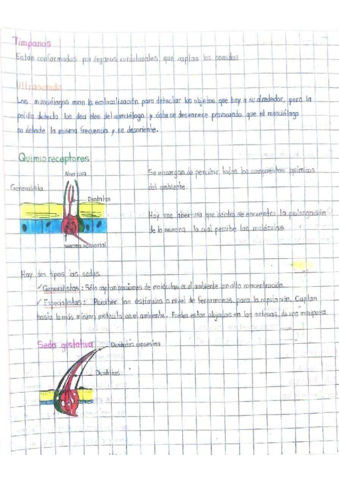 Tímpanos
Están conformados por órganos cordotonales que captan los sonidos.
Ultrasonido
Los murciélagos usan la ecolocalización para detectar los objetos que hay a su alrededor, pero la
polilla detecta los decibles del murciélago y ésta se desvanece provocando que el murciélago
no detecte la misma frecuencia y se desoriente.
Quimio receptores
Abertura
Se encargan de percibir todos los componentes químicos
del ambiente.
Generalista
Dendritas
Hay una abertura que dentro se encuentra la prolongación
de la neurona la cual percibe las moléculas.
Neurona sensorial
Hay dos tipos las sedas:
✓ Generalistas: Sólo captan porciones de moléculas en el ambiente en alta concentración.
✓ Especialistas: Perciben los estímulos a nivel de feromonas para la copulación. Captan
hasta la más mínima molécula en el ambiente. Puedes estar alojadas en las antenas de una mariposa.
Seda gustativa
Dendritas expuestas
Dendritas